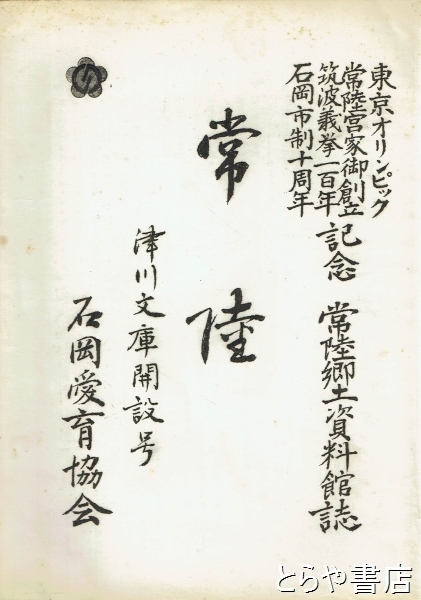 東京オリンピック
常陸宮家御創立
筑波義挙一百年
石岡市制十周年
記念
常陸郷土資料館誌
常陸
津川文庫開設号
石岡愛育協会
とらや書店